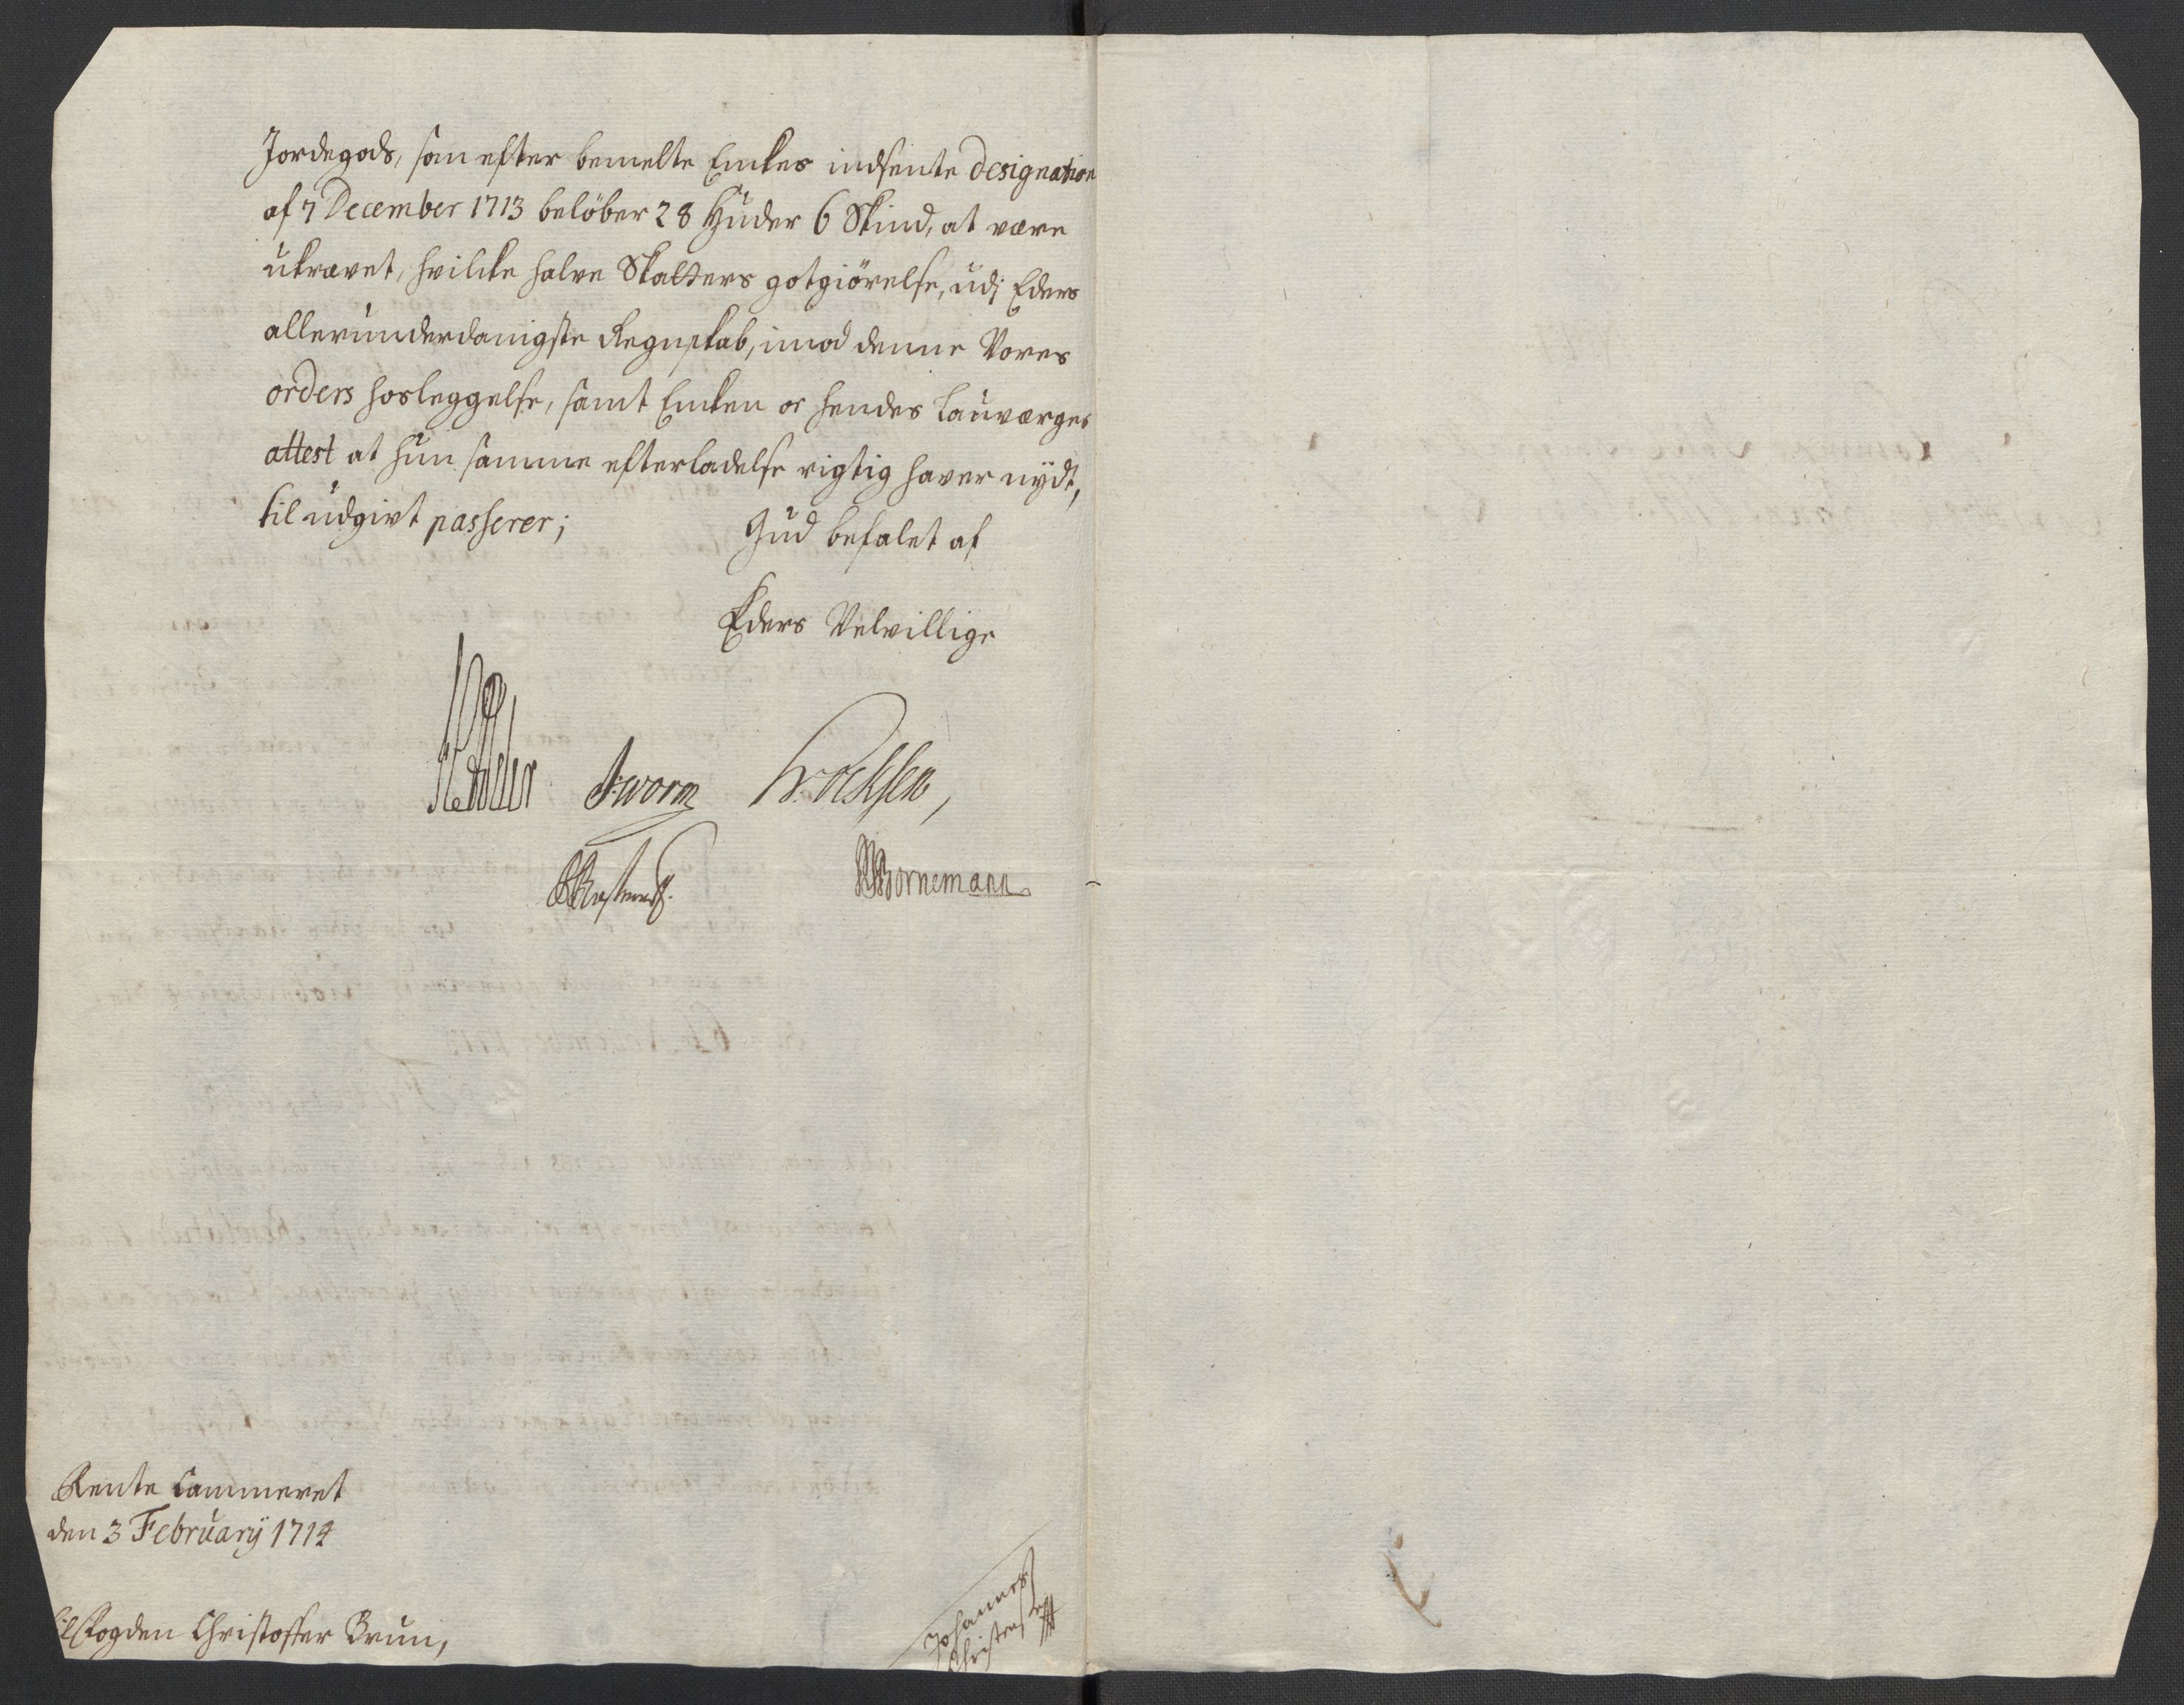 Jordegods, som efter bemelte Enkes indsente designation
af 7 December 1713 beløber 28 Huder 6 Skind, at være
ukrævet, hvilcke halve Skatters gotgiörelse, udj Eders
allerunderdanigste Regnskab, imod denne Vores
orders hosleggelse, samt Enken oc hendes Lauværges
attest at hun samme efterladelse rigtig haver nydt,
til udgivt passerer;
Gud befalet af
Eders Velvillige
J: Worm
Bornemann
Rente Cammeret
den 3 Februarij 1714
til Fogden Christoffer Brun,
Johannes
Christens